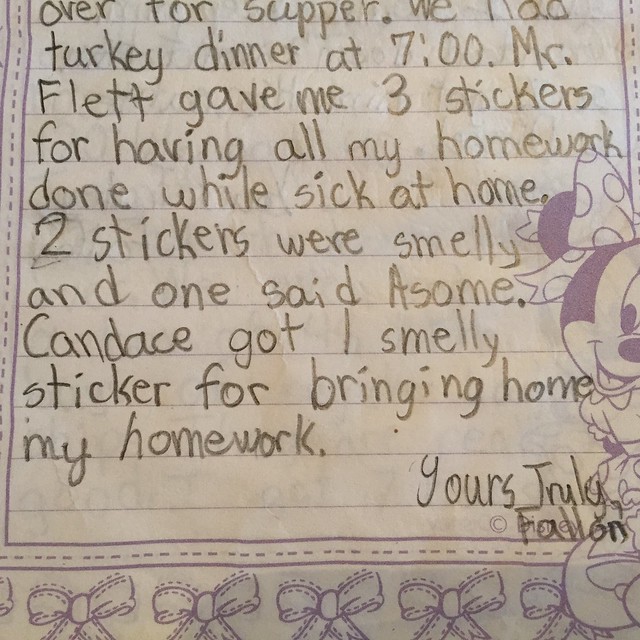 over for supper. We had
turkey dinner at 7:00. Mr.
Flett gave me 3 stickers
for having all my homework
done while sick at home.
2 stickers were smelly
and one said Asome.
Candace got 1 smelly
sticker for bringing home
my homework.
Yours Truly,
©